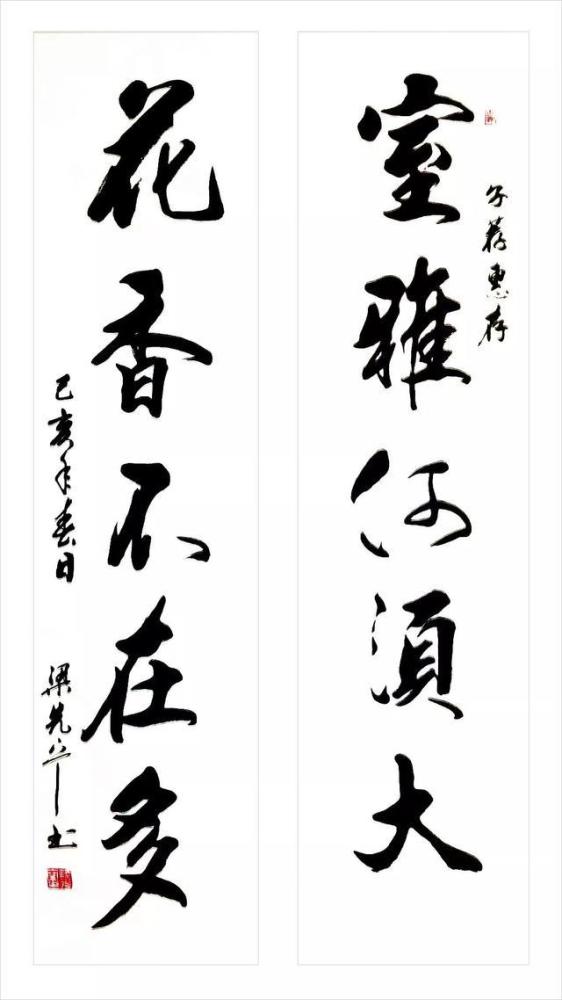 子 惠存
室雅何須大
花香不在多
己亥年春日 梁先平书